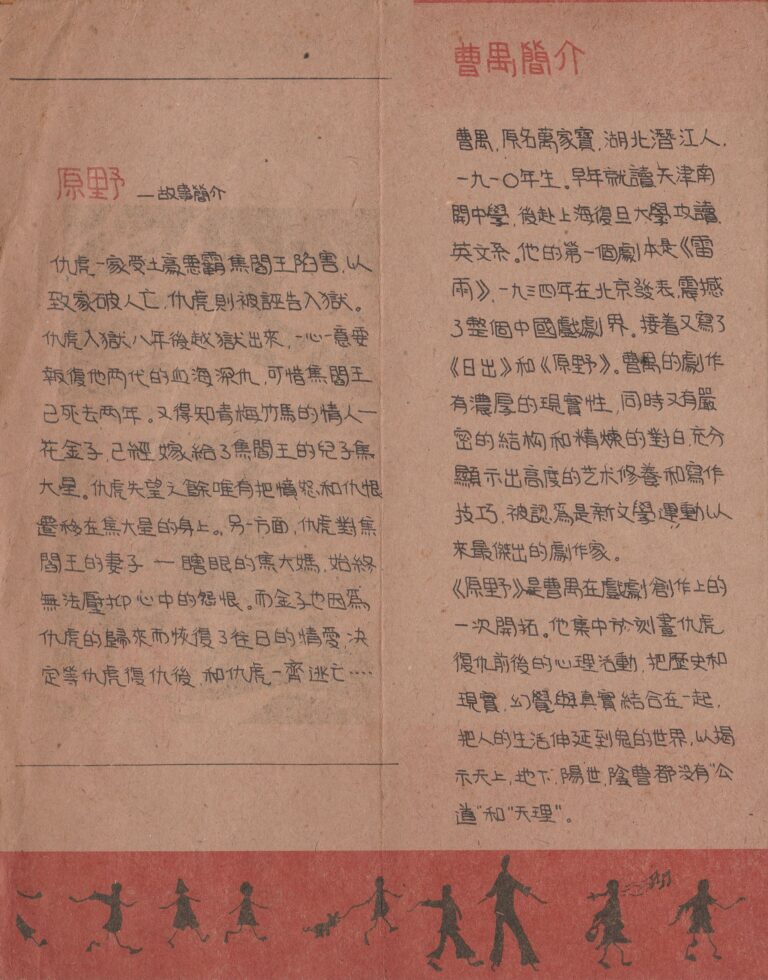 原野 —故事簡介
仇虎一家受土豪悪霸焦閻王陷害,以
致家破人亡,仇虎則被誣告入獄。
仇虎入獄八年後越獄出來,一心一意要
報復他两代的血海深仇,可惜焦閻王
已死去两年。又得知青梅竹馬的情人—
花金子,已經嫁給了焦閻王的兒子焦
大星。仇虎失望之餘唯有把憤怒和仇恨
遷移在焦大星的身上。另一方面,仇虎對焦
閻王的妻子 — 瞎眼的焦大媽,始終
無法壓抑心中的怨恨。而金子也因爲
仇虎的歸來而恢復了往日的情愛,決
定等仇虎復仇後,和仇虎一齊逃亡‥‥
曹禺簡介
曹禺,原名萬家寶,湖北潛江人,
一九一〇年生。早年就讀天津南
開中學,後赴上海復旦大學攻讀
英文系。他的第一個劇本是《雷
雨》,一九三四年在北京發表,震撼
了整個中國戲劇界。接着又寫了
《日出》和《原野》。曹禺的劇作
有濃厚的現實性,同時又有嚴
密的結构和精煉的對白,充分
顯示出高度的艺术修養和寫作
技巧,被認爲是新文學運動以
來最傑出的劇作家。
《原野》是曹禺在戲劇創作上的
一次開拓。他集中於刻畫仇虎
復仇前後的心理活動,把歷史和
現實,幻覺與真實結合在一起,
把人的生活伸延到鬼的世界,以揭
示天上,地下,陽世,陰曹都没有"公
道"和"天理"。